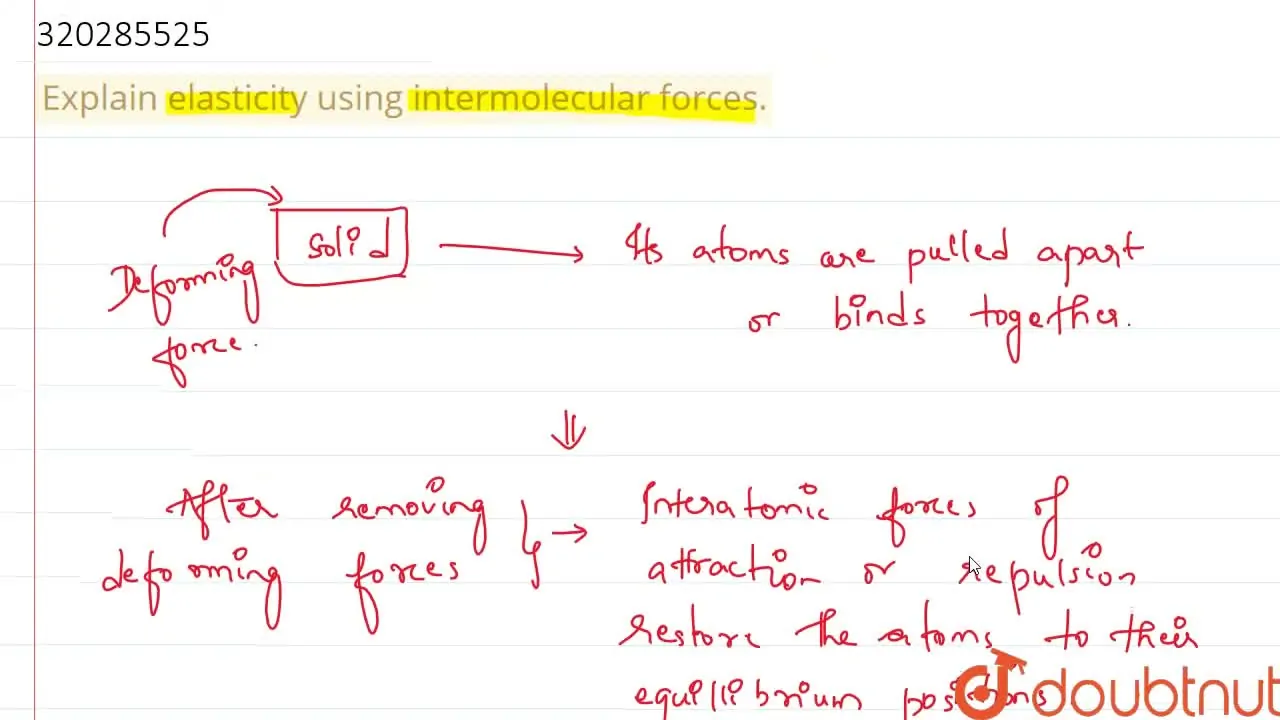 320285525
Explain elasticity using intermolecular forces.
Deforming
force.
solid
Its atoms are pulled apart
or binds together.
After removing
deforming forces
Interatomic forces of
attraction or repulsion
restore the atoms to their
equilibrium positions
doubtnut